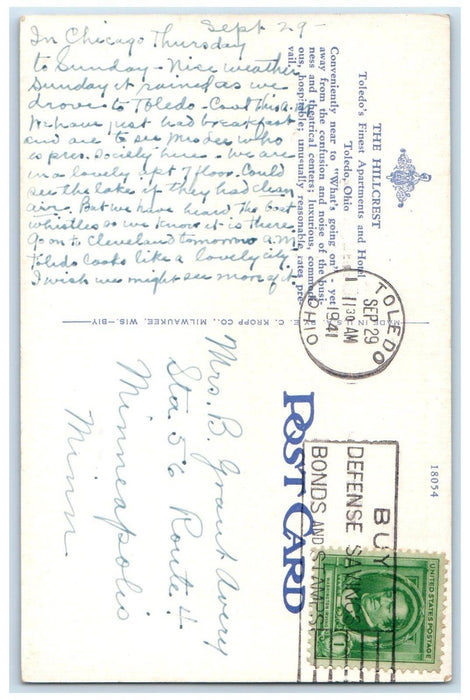 Sept 29-
In Chicago Thursday
to Sunday - Nice weather
Sunday it rained as we
drove to Toledo - Cool this A.M.
We have just had breakfast
and are to see Mrs Lee who
is pres. Society here - We are
in a lovely apt 7 floor. Could
see the lake if they had clean
air. But we have heard the boat
whistles so we know it is there.
Go on to Cleveland tomorrow A.M.
Toledo looks like a lovely city
I wish we might see more of it.
THE HILLCREST
Toledo's Finest Apartments and Hotel
Toledo, Ohio
Conveniently near to "What's going on," - yet
away from the confusion and noise of the busi-
ness and theatrical centers; luxurious, commodi-
ous, hospitable; unusually reasonable rates pre-
vail.
MADE IN U.S. E. C. KROPP CO., MILWAUKEE, WIS.-BIY
TOLEDO
SEP 29
11 30 AM
1941
OHIO
POST CARD
18054
BUY
DEFENSE SAVINGS
BONDS AND STAMPS
UNITED STATES POSTAGE
Mrs. B. Grant Avery
Sta 56 Route 4
Minneapolis
Minn